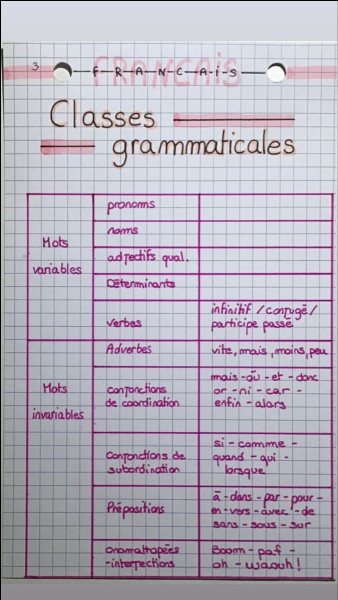 FRANCAIS
3
F-R-A-N-C-A-i-S
Classes
grammaticales
Mots
variables
pronoms
noms
adjectifs qual.
Déterminants
verbes
infinitif / conjugé /
participe passé
Mots
invariables
Adverbes
vite, mais, moins, peu
conjonctions
de coordination
mais - où - et - donc
or - ni - car -
enfin - alors
conjonctions de
subordination
si - comme -
quand - qui -
lorsque
Prépositions
à - dans - par - pour -
en - vers - avec - de
sans - sous - sur
onomattopées
-interjections
Boom - paf -
oh - waouh !